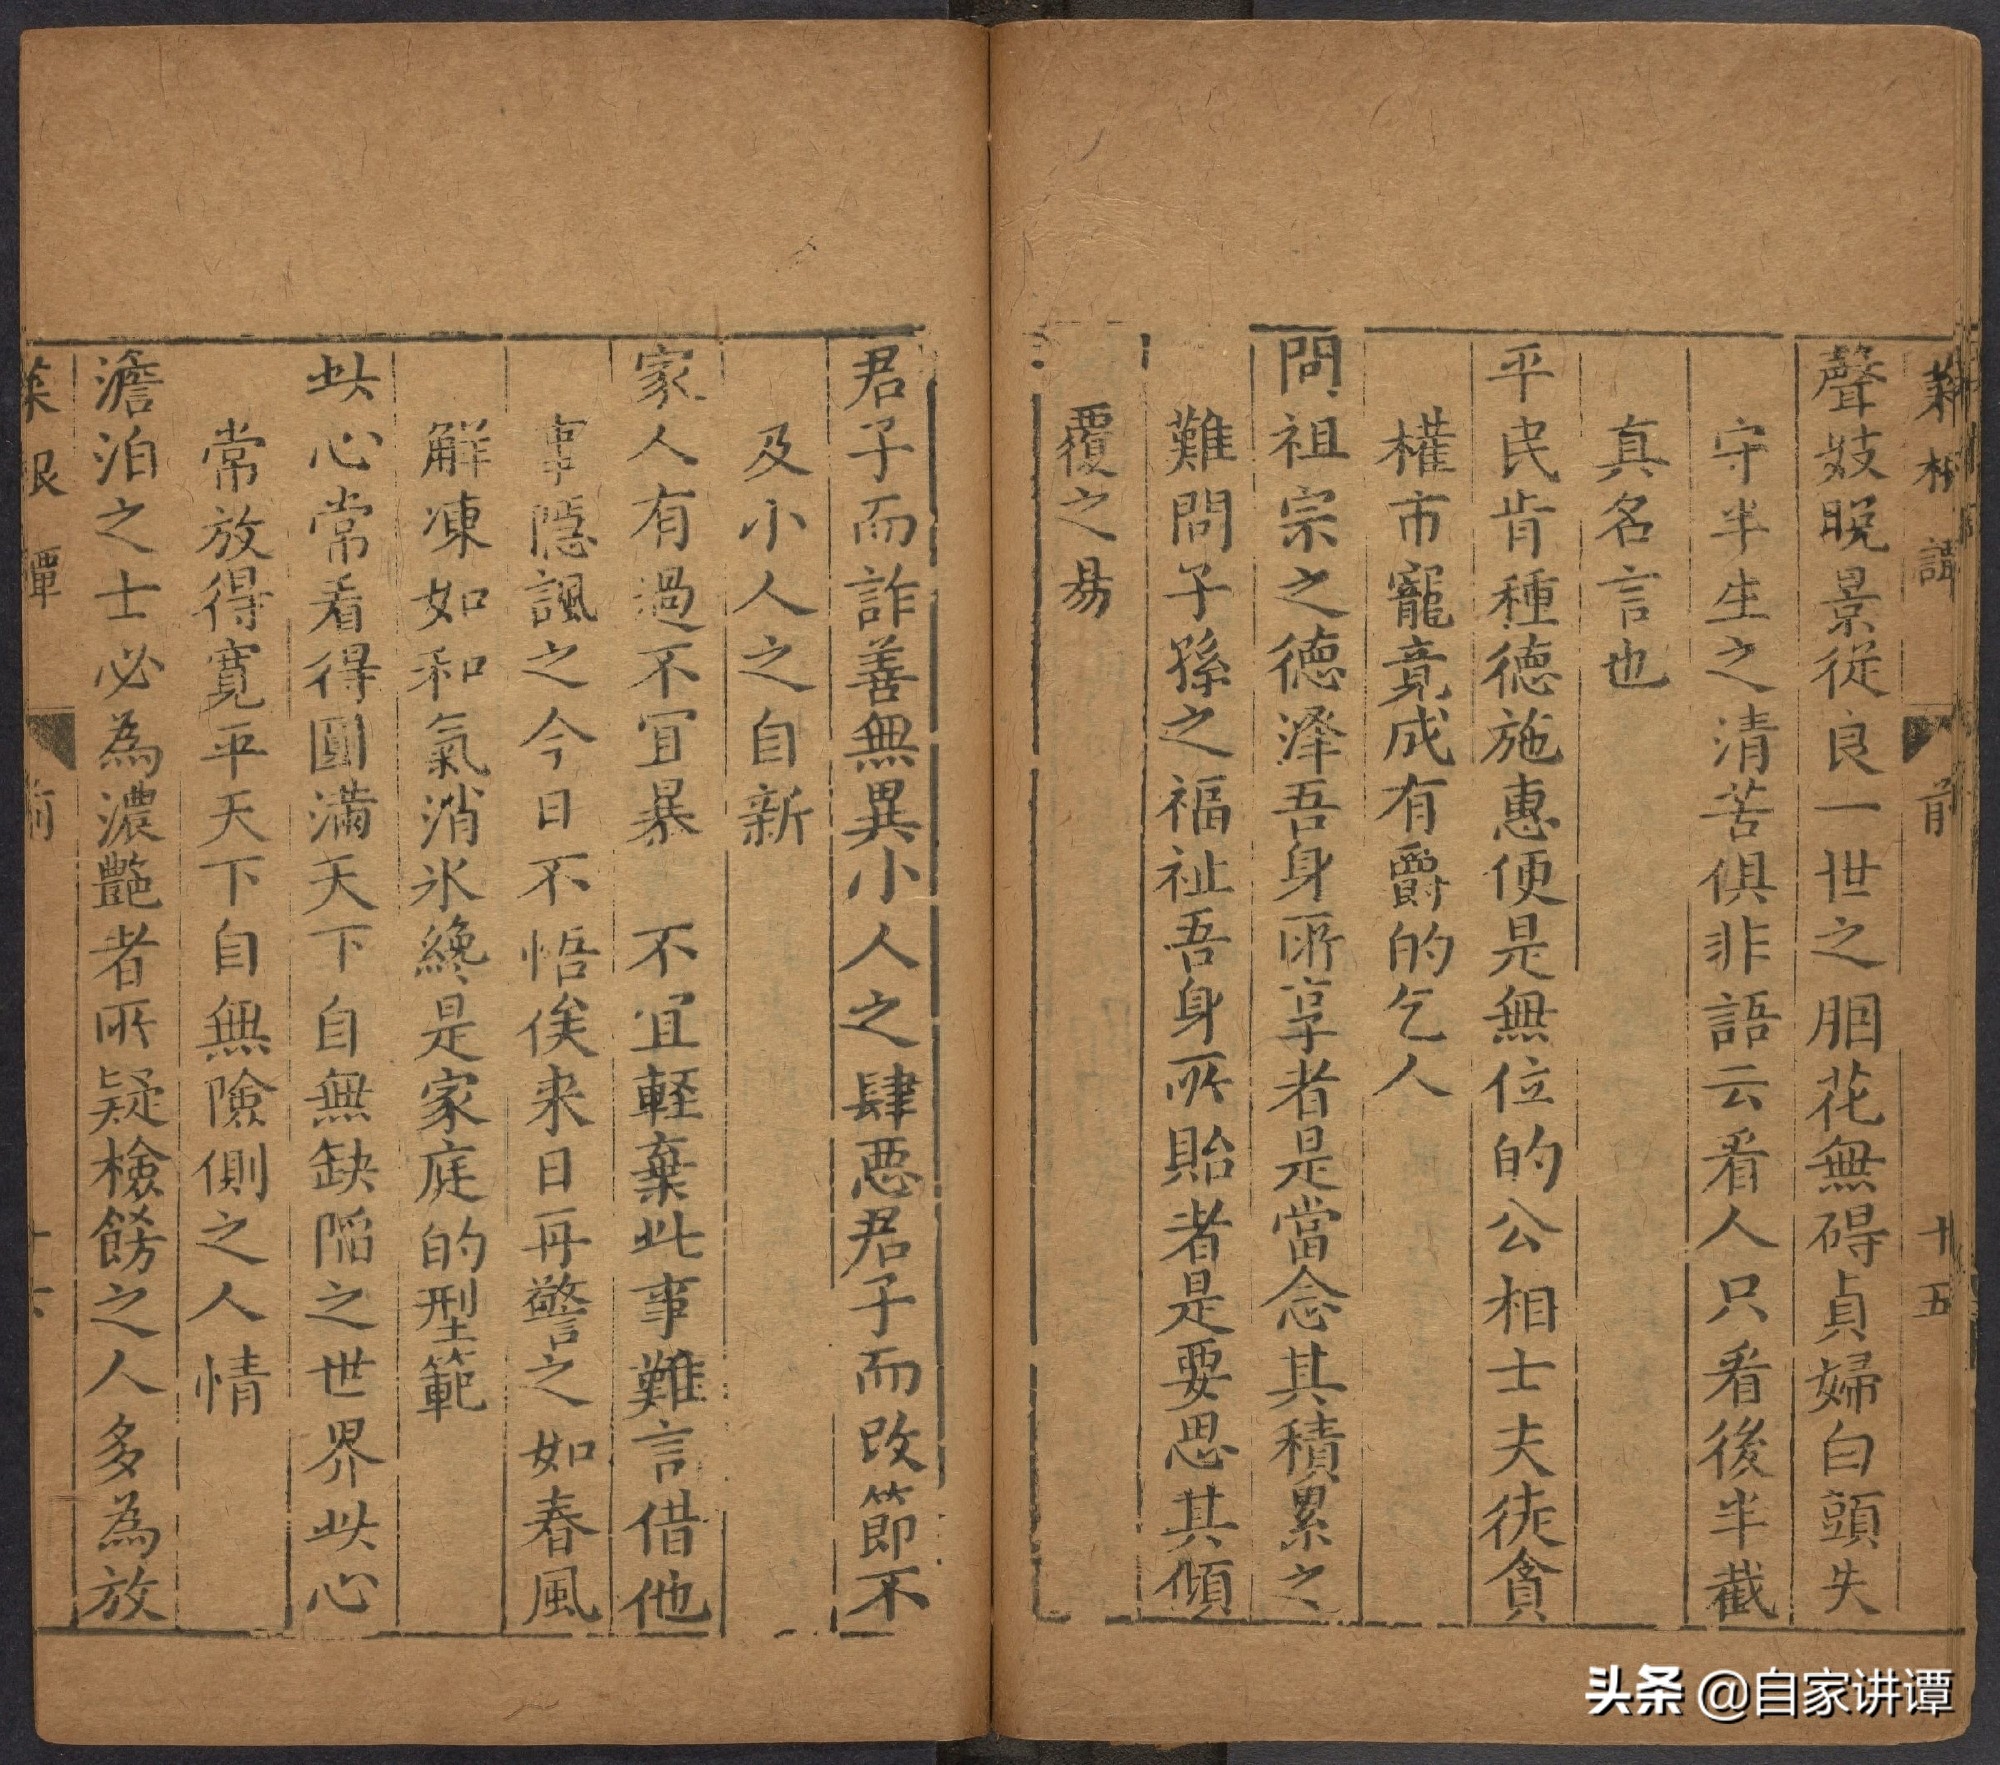 菜根譚 前 十五
聲妓晩景從良一世之胭花無碍貞婦白頭失
守半生之清苦俱非語云看人只看後半截
真名言也
平民肯種德施惠便是無位的公相士夫徒貪
權市寵竟成有爵的乞人
問祖宗之德澤吾身所享者是當念其積累之
難問子孫之福祉吾身所貽者是要思其傾
覆之易
君子而詐善無異小人之肆惡君子而改節不
及小人之自新
家人有過不宜暴 不宜輕棄此事難言借他
事隱諷之今日不悟俟来日再警之如春風
解凍如和氣消氷纔是家庭的型範
此心常看得圓滿天下自無缺陷之世界此心
常放得寬平天下自無險側之人情
澹泊之士必為濃艷者所疑檢飭之人多為放
菜根譚 前
头条 @自家讲谭